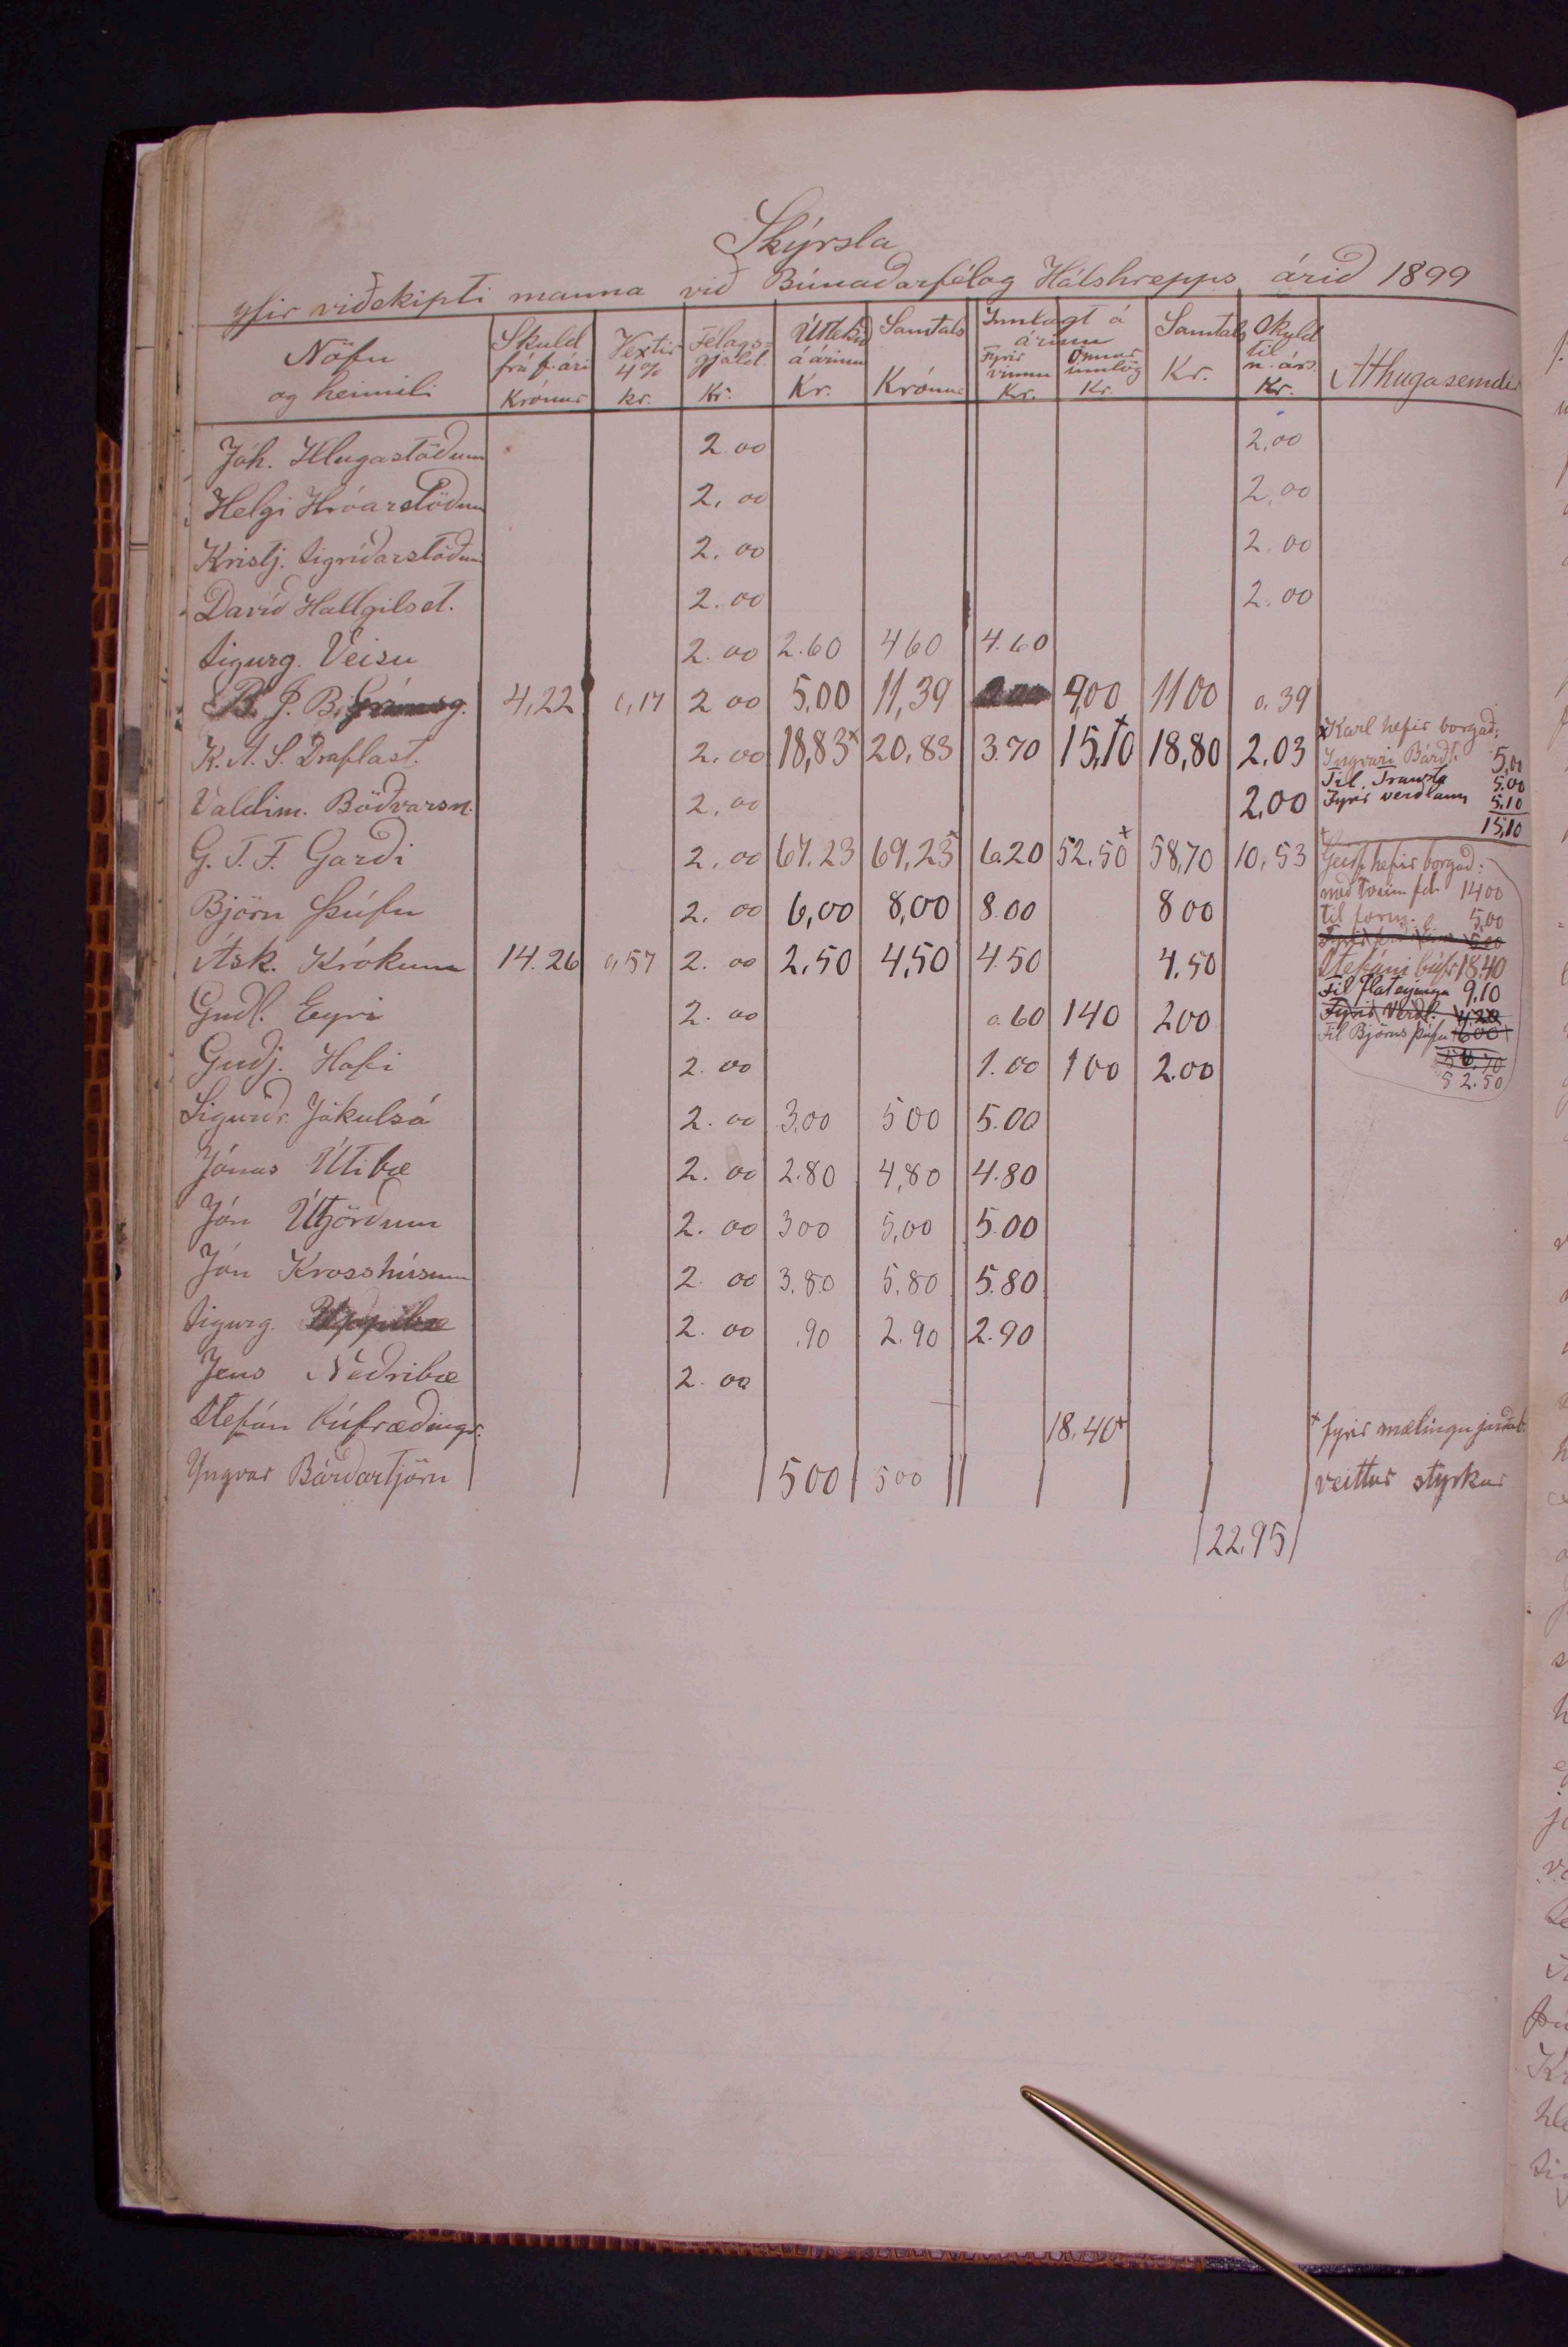 Skýrsla
yfir viðskipti manna við Búnaðarfélag Hálshrepps árið 1899
Nöfn og heimili | Skuld frá f. ári Krónur | Vextir 4% kr. | Félagsgjald. Kr. | Úttekið á árinu Kr. | Samtals Krónur | Innlagt á árinu Fyrir vinnu Kr. | Önnur innlög Kr. | Samtals Kr. | Skuld til n. árs. Kr. | Athugasemdir
Jóh. Illugastöðum 2.00 2,00
Helgi Hróarstöðum 2.00 2,00
Kristj. Sigríðarstöðum 2.00 2.00
Davíð Hallgilsst. 2.00 2.00
Sigurg. Veisu 2.00 2.60 460 4.60
B. J. B. 4,22 0,17 2 00 5,00 11,39 9,00 1100 0.39
K. A. S. Draflast. 2.00 18,83x 20,83 3.70 15,10+ 18,80 2,03 xKarl hefir borgað:
Ingvari Bárðt. 5,00
Til Trausta 5.00
Valdim. Böðvarsn. 2,00 2,00 Fyrir verðlaun 5,10
15,10
G. T. F. Garði 2.00 67.23 69,23 6.20 52.50+ 58,70 10,53 hefir borgað:
með tveim fél. 1400
Björn Þúfu 2.00 6,00 8,00 8.00 800 til form. 5,00
Ásk. Krókum 14.26 0,57 2.00 2,50 4,50 4.50 4.50 Stefáni búfr 18.40
Til Flateyinga 9.10
Guðl. Eyri 2.00 0.60 140 200 Fyrir Verðl. 4,20
Til Björns Þúfu 600
Guðj. Hofi 2.00 1.00 100 2.00
52.50
Sigurðr. Jökulsá 2.00 3,00 500 5.00
Jónas Útibæ 2.00 2.80 4,80 4.80
Jón Útgörðum 2.00 300 5,00 5.00
Jón Krosshúsum 2.00 3.80 5.80 5.80
Sigurg. 2.00 .90 2.90 2.90
Jens Neðribæ 2.00
Stefán búfræðingr. 18.40+ + fyrir mælingu jarðab.
Yngvar Bárðartjörn 500 500 veittur styrkur
22.95